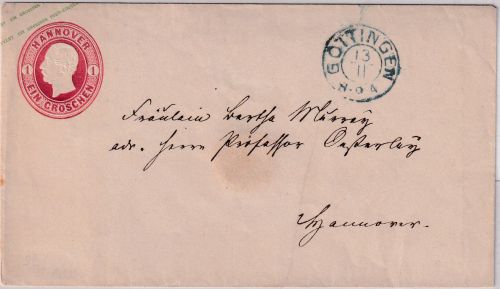 HANNOVER
1 1
EIN GROSCHEN
GÖTTINGEN
13
II
Fräulein Bertha Murray
adr. Herrn Professor Oesterley
Hannover.